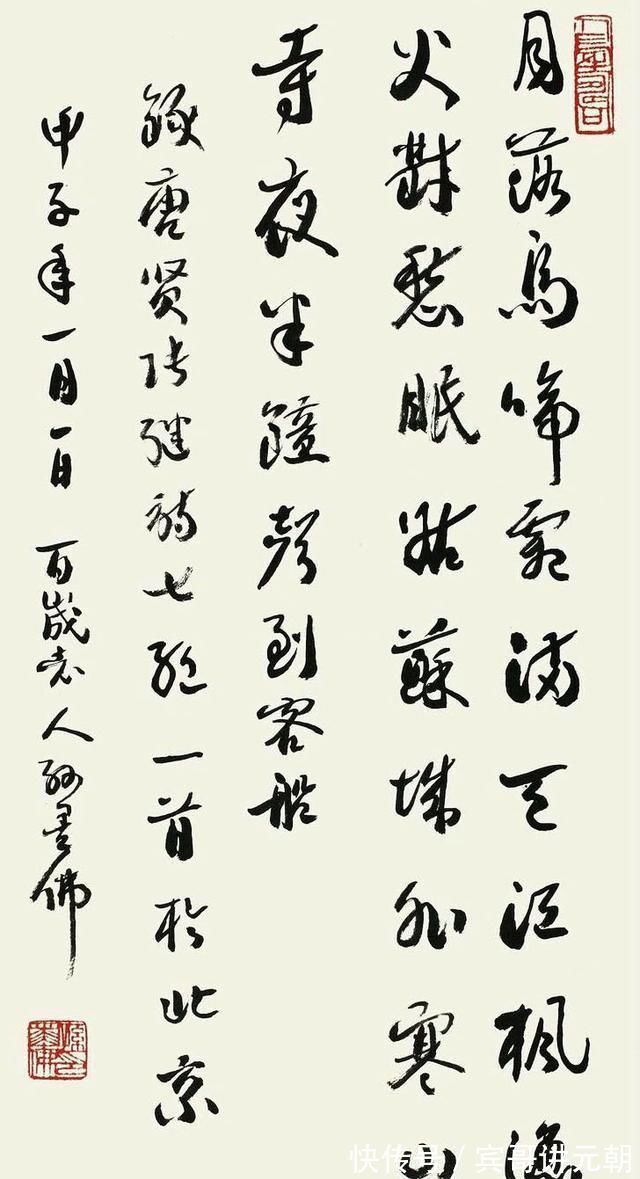 月落乌啼霜满天江枫渔
火对愁眠姑苏城外寒山
寺夜半钟声到客船
录唐贤张继诗七绝一首于北京
甲子年一月一日 百岁老人孙墨佛
快传号 / 宾哥讲元朝